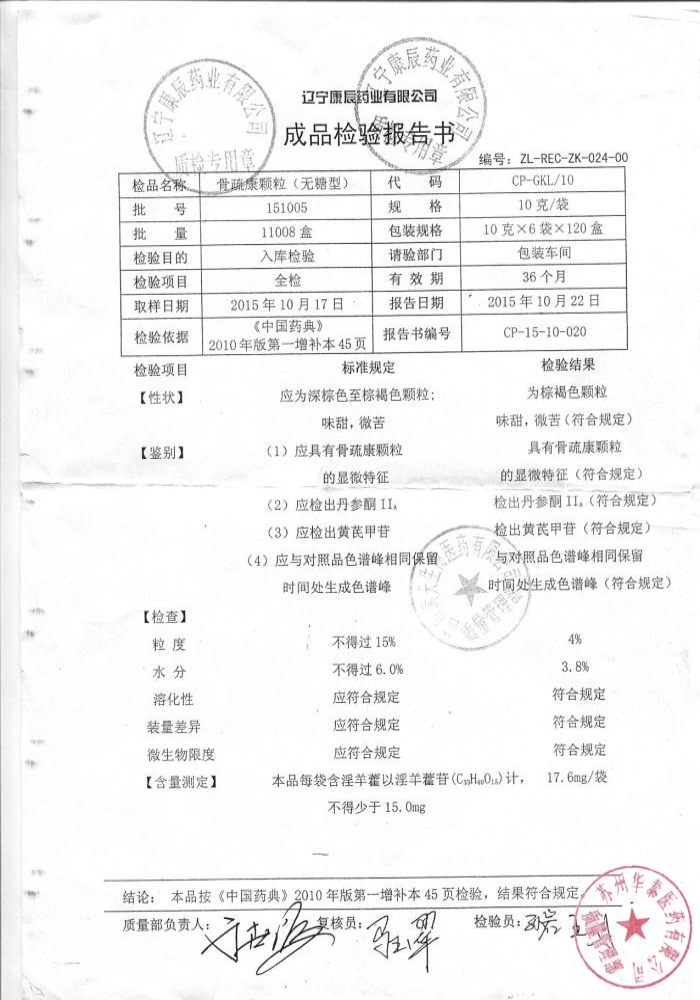 辽宁康辰药业有限公司
成品检验报告书
辽宁康辰药业有限公司
质检专用章
辽宁康辰药业有限公司
质检专用章
编号：ZL-REC-ZK-024-00
检品名称 骨疏康颗粒（无糖型） 代 码 CP-GKL/10
批 号 151005 规 格 10克/袋
批 量 11008盒 包装规格 10克×6袋×120盒
检验目的 入库检验 请验部门 包装车间
检验项目 全检 有 效 期 36个月
取样日期 2015年10月17日 报告日期 2015年10月22日
检验依据 《中国药典》 2010年版第一增补本45页 报告书编号 CP-15-10-020
检验项目 标准规定 检验结果
【性状】 应为深棕色至棕褐色颗粒; 为棕褐色颗粒
味甜，微苦 味甜，微苦（符合规定）
【鉴别】 （1）应具有骨疏康颗粒 具有骨疏康颗粒
的显微特征 的显微特征（符合规定）
（2）应检出丹参酮IIA 检出丹参酮IIA（符合规定）
（3）应检出黄芪甲苷 检出黄芪甲苷（符合规定）
（4）应与对照品色谱峰相同保留 与对照品色谱峰相同保留
时间处生成色谱峰 时间处生成色谱峰（符合规定）
【检查】
粒 度 不得过15% 4%
水 分 不得过6.0% 3.8%
溶化性 应符合规定 符合规定
装量差异 应符合规定 符合规定
微生物限度 应符合规定 符合规定
【含量测定】 本品每袋含淫羊藿以淫羊藿苷(C33H40O15)计， 17.6mg/袋
不得少于15.0mg
结论： 本品按《中国药典》2010年版第一增补本45页检验，结果符合规定
质量部负责人： 复核员： 检验员：
苏州华泰医药有限公司